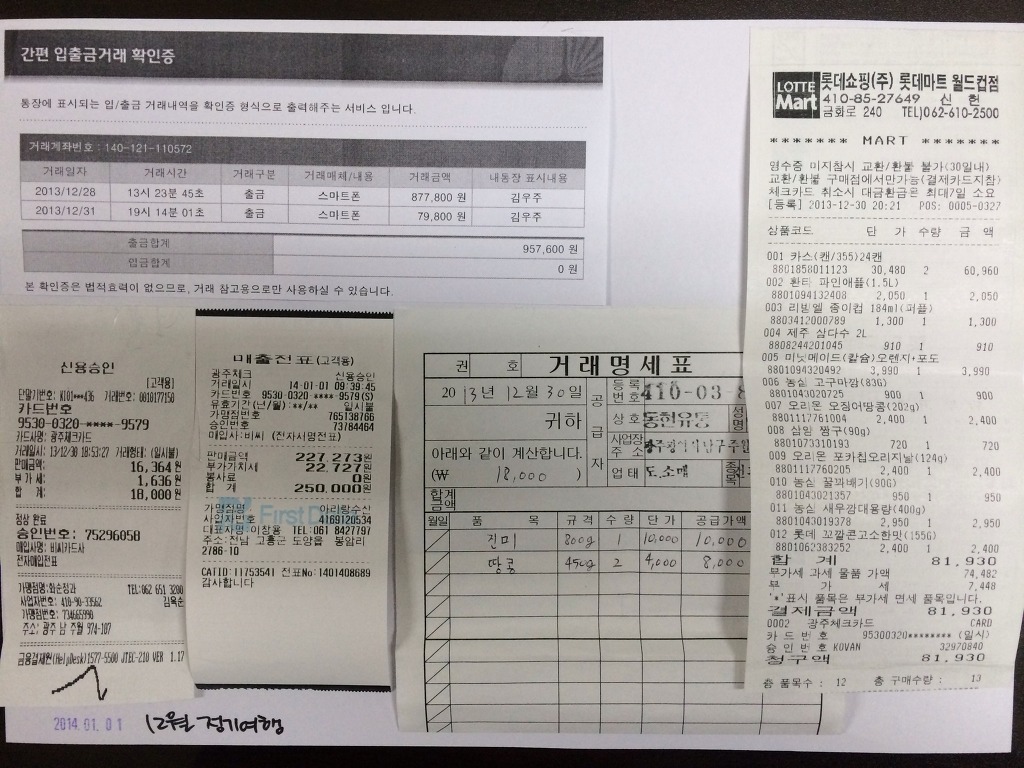 간편 입출금거래 확인증
통장에 표시되는 입/출금 거래내역을 확인증 형식으로 출력해주는 서비스 입니다.
거래계좌번호 : 140-121-110572
거래일자 거래시간 거래구분 거래매체/내용 거래금액 내통장 표시내용
2013/12/28 13시 23분 45초 출금 스마트폰 877,800 원 김우주
2013/12/31 19시 14분 01초 출금 스마트폰 79,800 원 김우주
출금합계 957,600 원
입금합계 0 원
본 확인증은 법적효력이 없으므로, 거래 참고용으로만 사용하실 수 있습니다.
신용승인
[고객용]
단말기번호: 거래번호: 0101877150
카드번호
9530-0320-****-9579
카드사명: 광주체크카드
거래일시: 13/12/30 18:53:27 거래형태: (일시불)
판매금액: 16,364원
부 가 세: 1,636원
합 계: 18,000원
정상 완료
승인번호: 75296058
매입사명: 비씨카드사
전자매입전표
가맹점명:화순장과 TEL:062 651 3280
사업자번호: 410-90-33562 김옥순
가맹점번호: 734665990
주소: 광주 남 주월 974-107
금융결제원(HelpDesk)1577-5500 JTEC-210 VER 1.17
2014.01.01 12월 정기여행
매출전표(고객용)
광주체크 신용승인
거래일시 14-01-01 09:39:45
카드번호 9530-0320-****-9579(S)
유효기간(년/월):**/** 일시불
가맹점번호 765138766
승인번호 73784464
매입사:비씨 (전자서명전표)
판매금액 227,273원
부가가치세 22,727원
봉사료 0원
합 계 250,000원
First D
가맹점명 아리랑수산
사업자번호 4169120534
대표자명:이창용 TEL:061 8427797
주소:전남 고흥군 도양읍 봉암리
2786-10
CATID:11753541 전표No:1401408689
감사합니다
권 호 거래명세표
2013년 12월 30일
귀하
아래와 같이 계산합니다.
(₩ 18,000 )
공급자
등록번호 410-03-8
상호 동현유통 성명
사업장주소
업태 도.소매 종목
합계금액
월일 품 목 규격 수량 단가 공급가액
진미 800g 1 10,000 10,000
땅콩 450g 2 4,000 8,000
LOTTE Mart
롯데쇼핑(주) 롯데마트 월드컵점
410-85-27649 신 헌
금화로 240 TEL)062-610-2500
******* MART *******
영수증 미지참시 교환/환불 불가(30일내)
교환/환불 구매점에서만가능(결제카드지참)
체크카드 취소시 대금환급은 최대7일 소요
[등록] 2013-12-30 20:21 POS: 0005-0327
상품코드 단 가 수량 금 액
001 카스(캔/355)24캔
8801858011123 30,480 2 60,960
002 환타 파인애플(1.5L)
8801094132408 2,050 1 2,050
003 리빙엘 종이컵 184ml(퍼플)
8803412000789 1,300 1 1,300
004 제주 삼다수 2L
8808244201045 910 1 910
005 미닛메이드(칼슘)오렌지+포도
8801094320492 3,990 1 3,990
006 농심 고구마깡(83G)
8801043020725 900 1 900
007 오리온 오징어땅콩(202g)
8801117761004 2,400 1 2,400
008 삼임 짱구(90g)
8801073310193 720 1 720
009 오리온 포카칩오리지날(124g)
8801117760205 2,400 1 2,400
010 농심 꿀꽈배기(90G)
8801043021357 950 1 950
011 농심 새우깡대용량(400g)
8801043019378 2,950 1 2,950
012 롯데 꼬깔콘고소한맛(155G)
8801062383252 2,400 1 2,400
합 계 81,930
부가세 과세 물품 가액 74,482
부 가 세 7,448
'*'표시 품목은 부가세 면세 품목입니다.
결제금액 81,930
0002 광주체크카드 CARD
카 드 번 호 95300320******** (일시)
승 인 번 호 KOVAN 32970840
청구액 81,930
총 품목수 : 12 총 구매수량 : 13